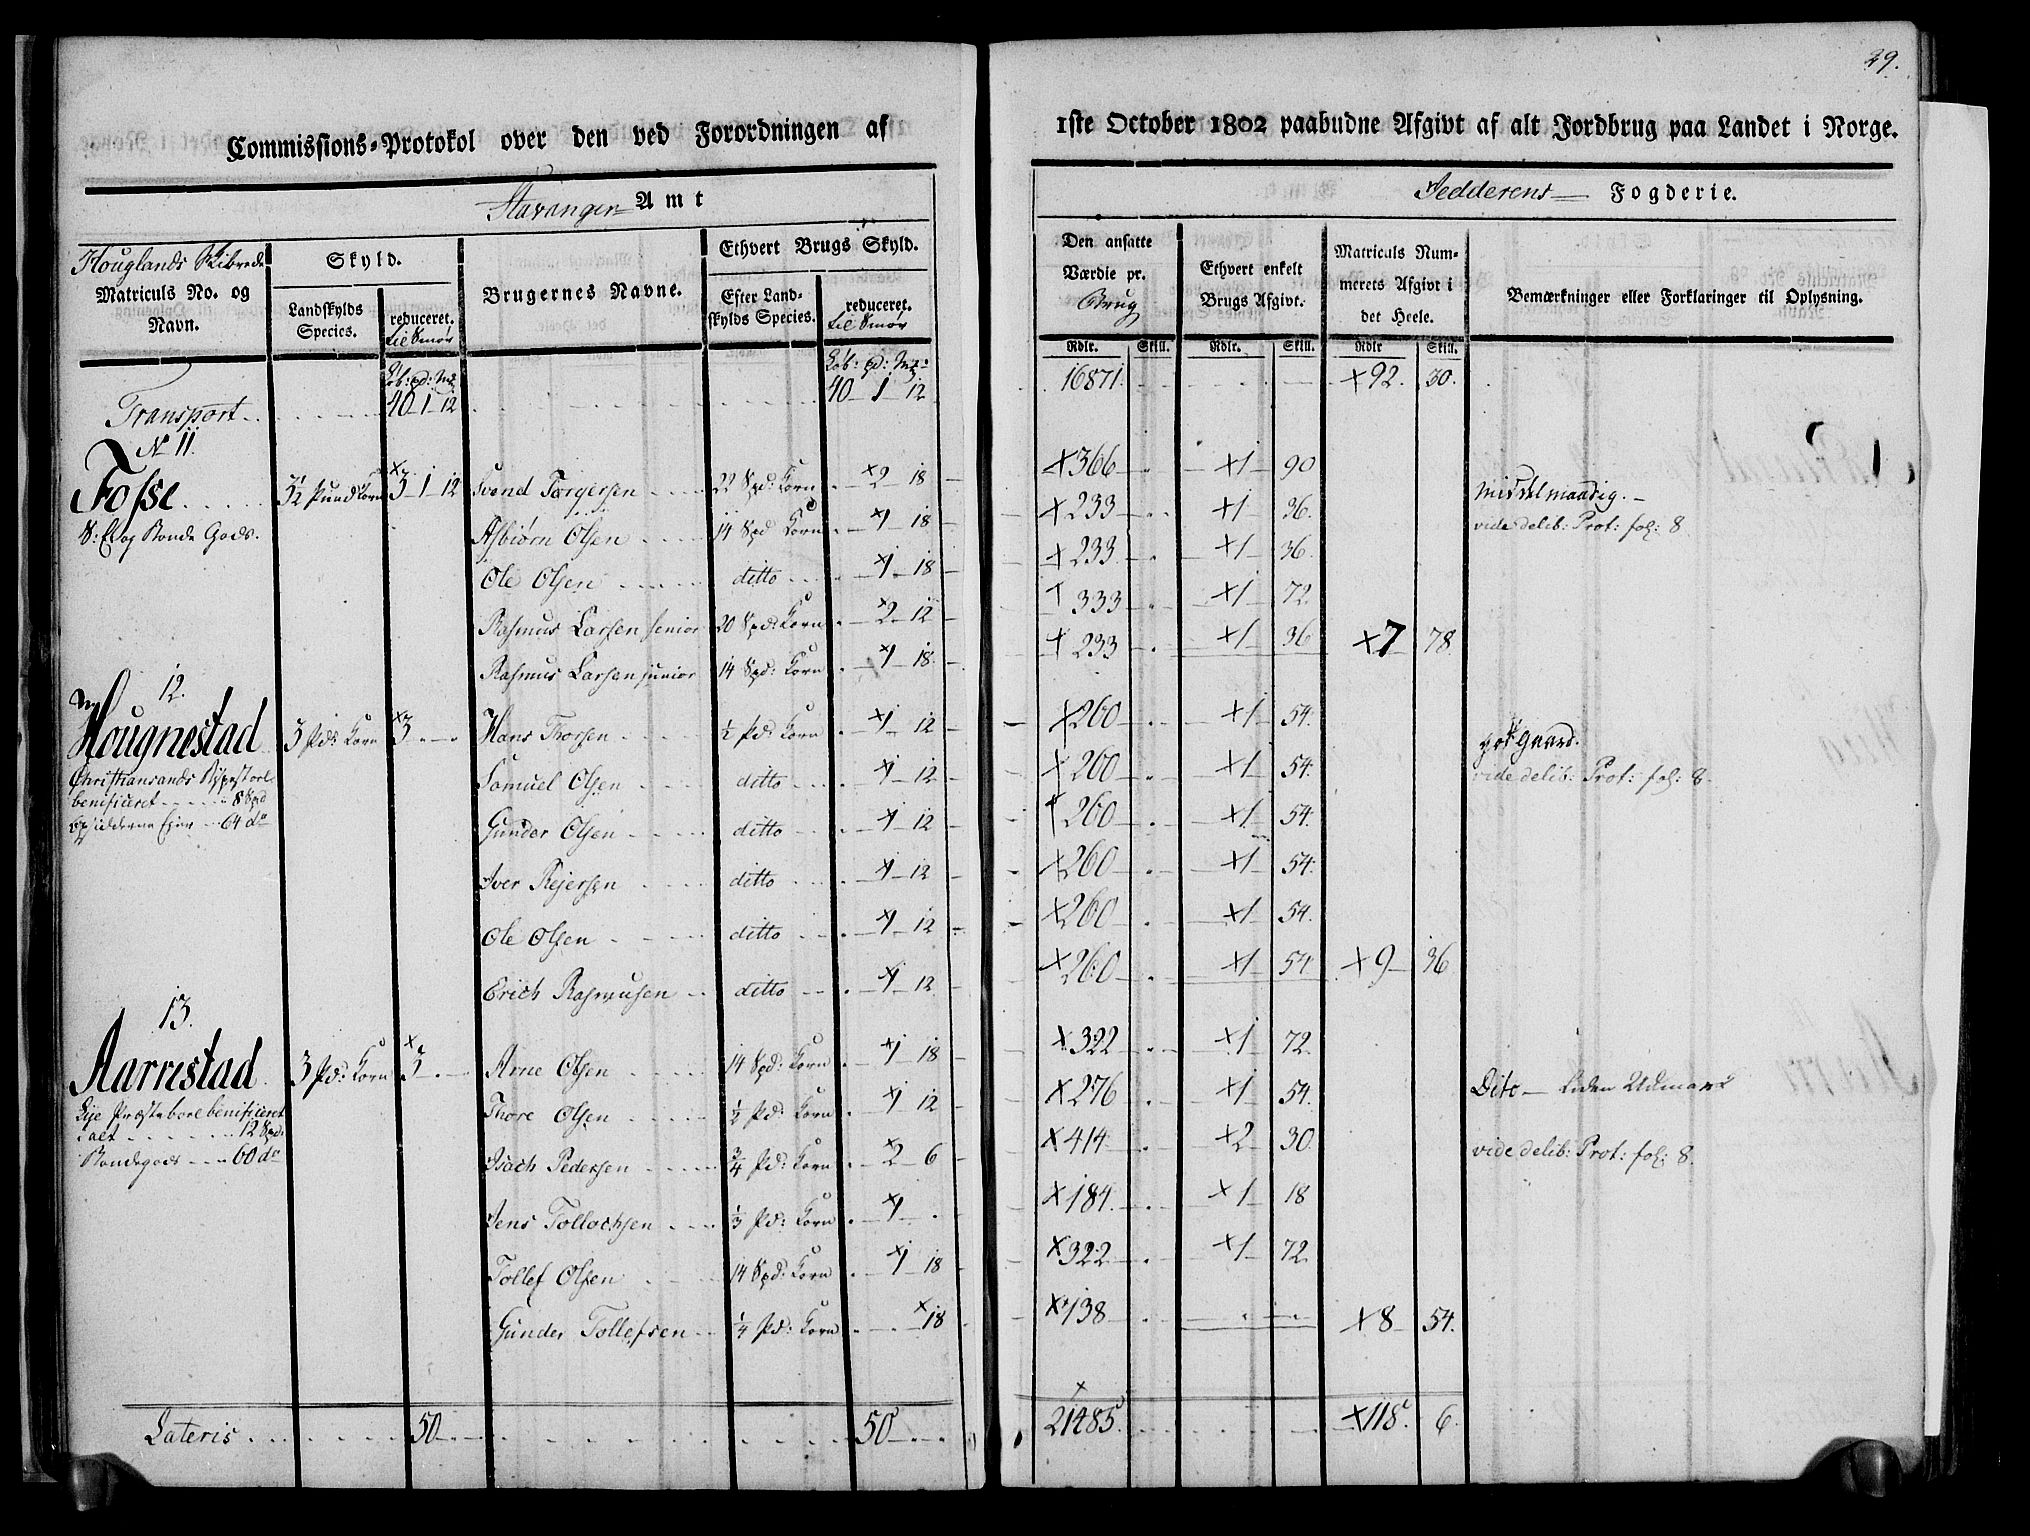 29.
Commissions-Protokol over den ved Forordningen af 1ste October 1802 paabudne Afgivt af alt Jordbrug paa Landet i Norge.
Stavanger Amt
Jedderens Fogderie.
Houglands Skibrede
Matriculs No. og Navn.
Skyld.
Landskylds Species.
reduceret. til Smør
Brugernes Navne.
Ethvert Brugs Skyld.
Efter Landskylds Species.
reduceret. til Smør
Den ansatte Værdie pr. Brug
Ethvert enkelt Brugs Afgivt.
Matriculs Nummerets Afgivt i det Heele.
Bemærkninger eller Forklaringer til Oplysning.
Rdlr. Skill. Rdlr. Skill. Rdlr Skill.
Transport 40 1 12 40 1 12 16871. ×92. 30.
N 11.
Fosse 3½ Pund Korn ×3 1 12 Svend Torgersen 22 Spd: Korn ×2 18 ×366 ×1 90 Middelmaadig.
og Bonde Gods. Asbiørn Olsen 14 Spd Korn ×1 18 ×233 ×1 36. vide delib: Prot: fol: 8.
Ole Olsen ditto ×1 18 ×233 ×1 36.
Rasmus Larsen senior 20 Spd: Korn ×2 12 ×333 ×1 72.
Rasmus Larsen junior 14 Spd: Korn ×1 18 ×233 ×1 36 ×7 78.
12.
Hougnestad 3 Pd: Korn ×3 Hans Thorsen ½ Pd: Korn ×1 12 ×260 ×1 54.
Christiansands Bispestoel Samuel Olsen ditto ×1 12 ×260 ×1 54. vide delib: Prot: fol: 8.
benificeret 8 Spd
64 do Gunder Olsen ditto ×1 12 ×260 ×1 54.
Iver Rejersen ditto ×1 12 ×260 ×1 54.
Ole Olsen ditto ×1 12 ×260 ×1 54.
Erich Rasmusen ditto ×1 12 ×260 ×1 54 ×9 36
13.
Aarrestad 3 Pd: Korn ×3 Arne Olsen 14 Spd: Korn ×1 18 ×322 ×1 72.
Lye Præstebole benificeret Thore Olsen ½ Pd: Korn ×1 12 ×276 ×1 54. Dito — Liden Udmark
i alt 12 Spd:
Bondegods 60 do Isach Pedersen ¾ Pd: Korn ×2 6 ×414 ×2 30 vide delib: Prot: fol: 8.
Jens Tollachsen ⅓ Pd: Korn ×1 ×184. ×1 18
Tollef Olsen 14 Spd: Korn ×1 18 ×322 ×1 72.
Gunder Tollefsen ¼ Pd: Korn ×18 ×138 ×8 54.
Lateris 50 50 ×21485. ×118. 6.